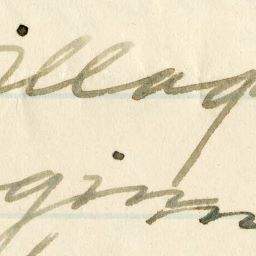 illag
ginn